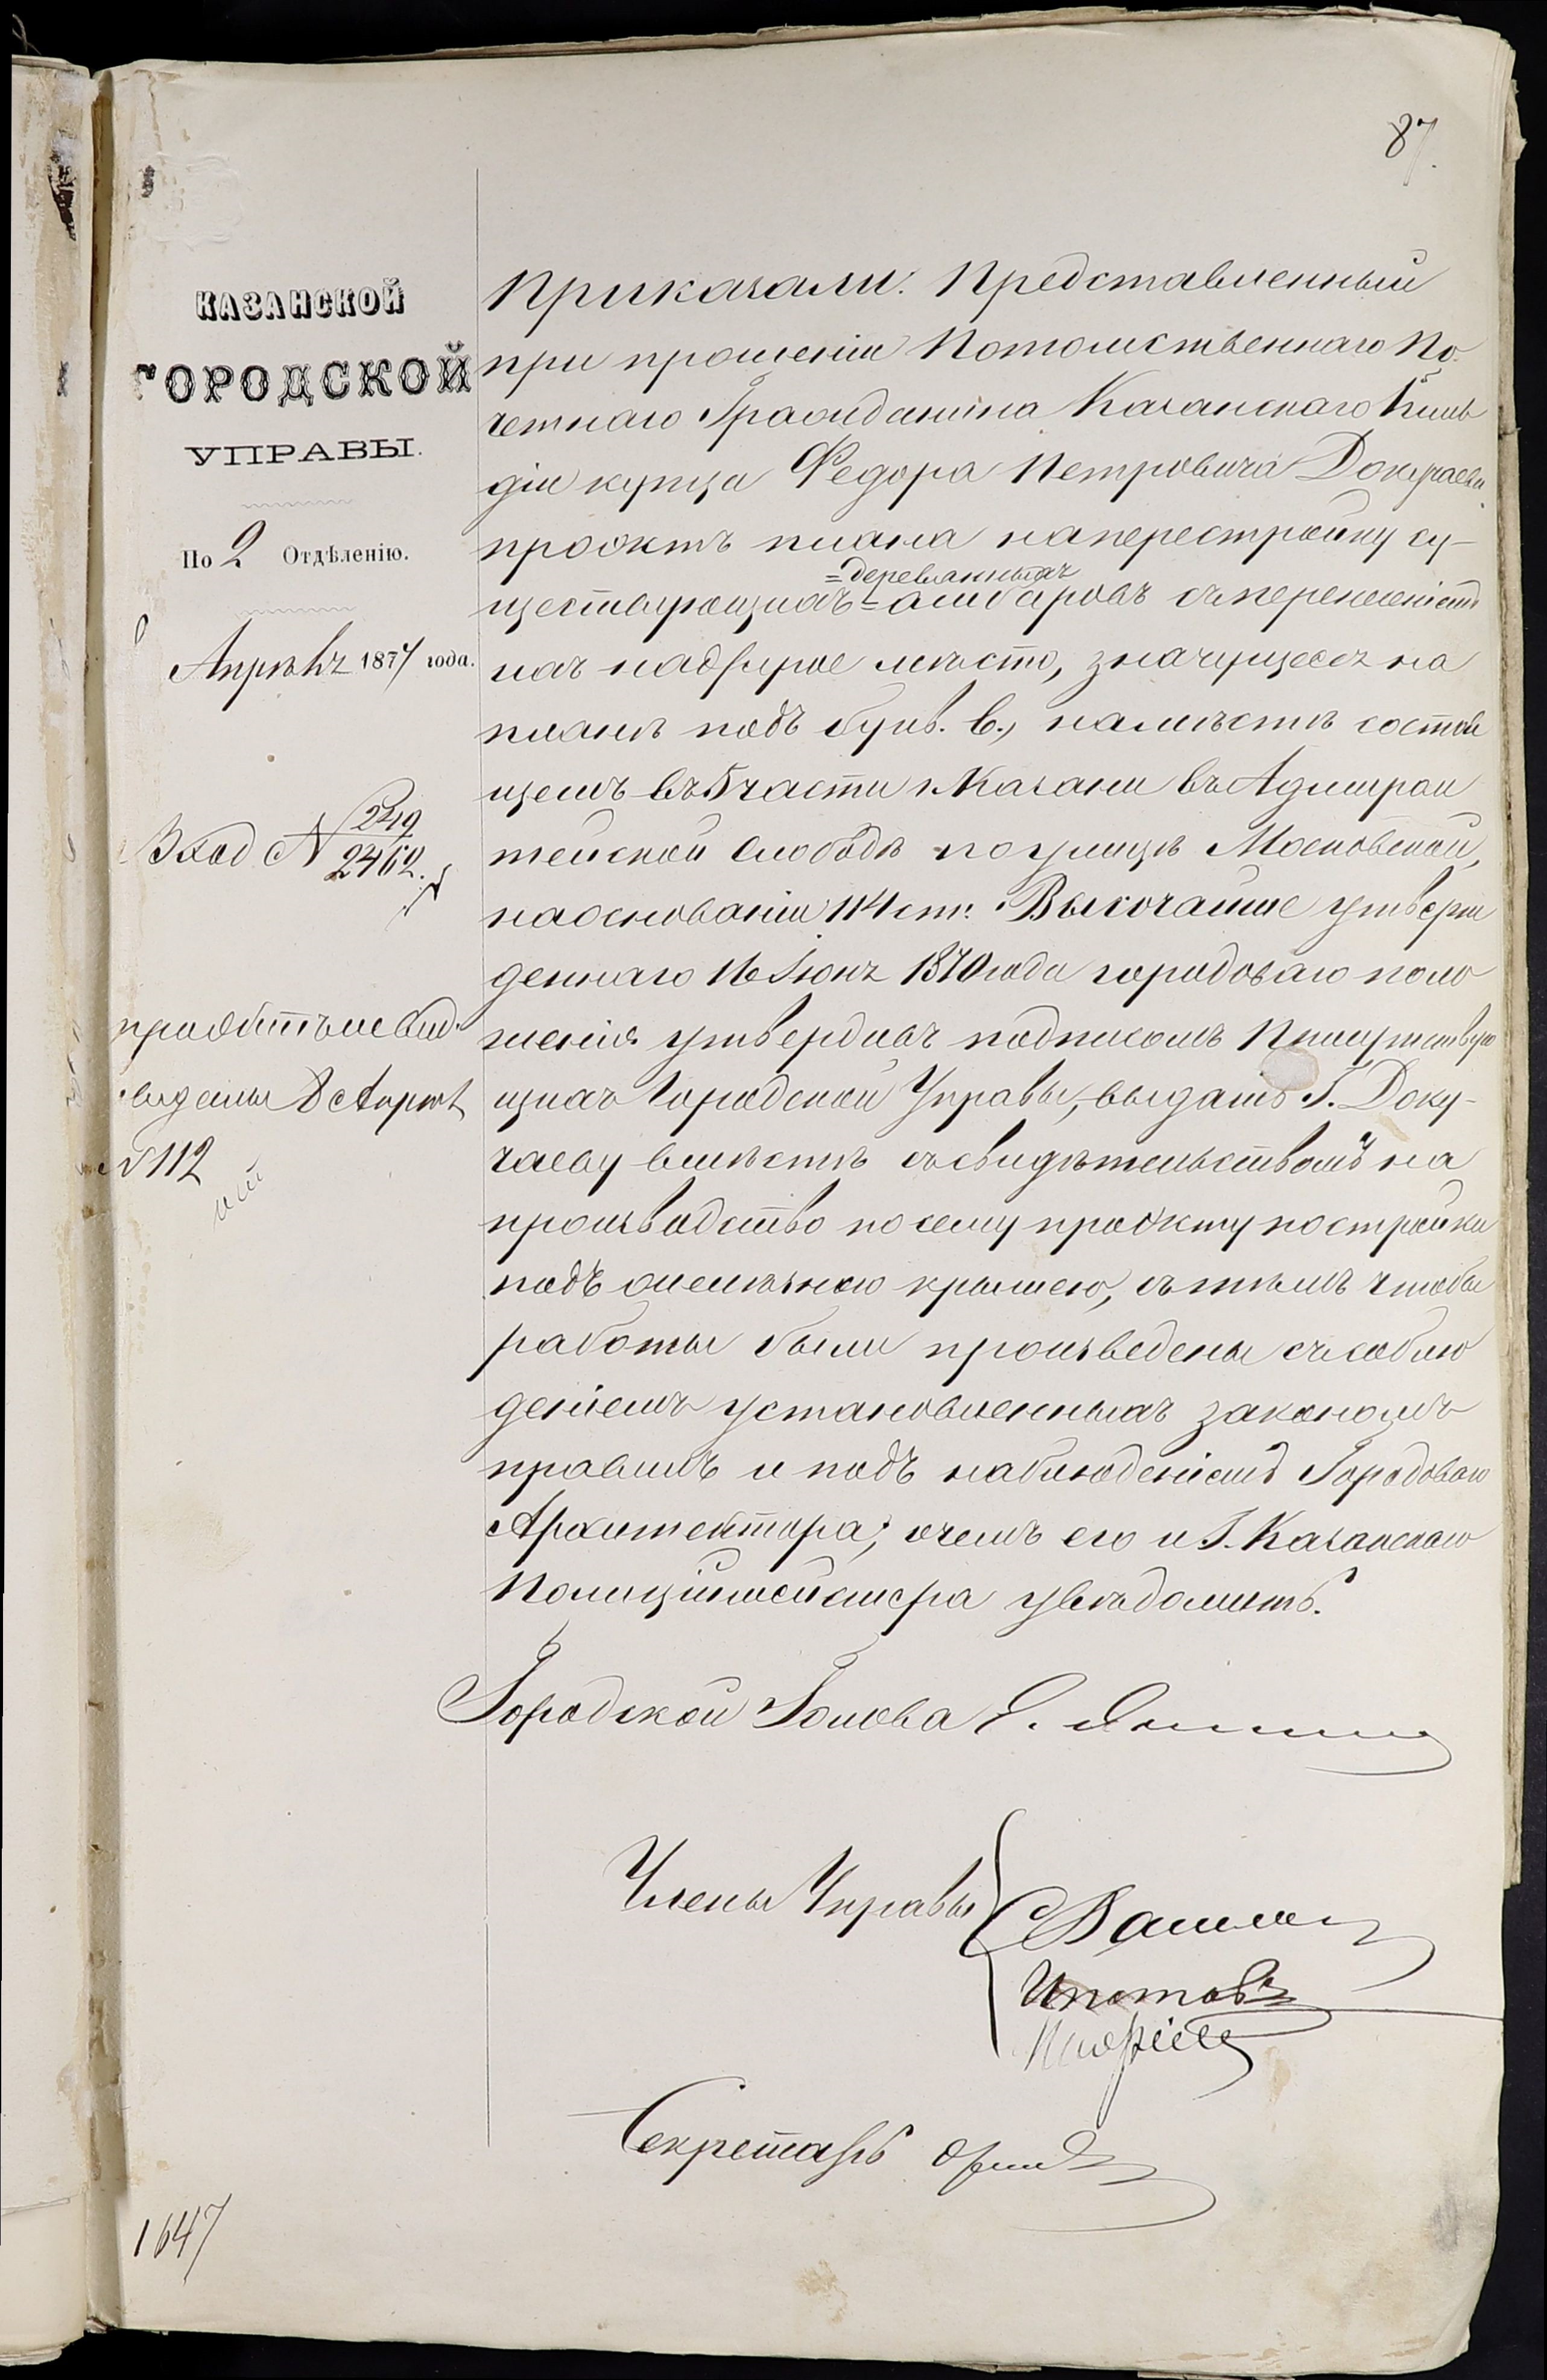 87.
КАЗАНСКОЙ
ГОРОДСКОЙ
УПРАВЫ.
По 2 Отдѣленію.
Апрѣля 1877 года.
Вход № 249
2462.
проэктъ и свид.
выданы 8 Апрѣл
№ 112
1647
Приказали: Представленный
при прошеніи Потомственнаго По-
четнаго Гражданина Казанскаго 1 гиль
діи купца Федора Петровича Докучаева
проэктъ плана на перестройку су-
=деревянныхъ
ществующихъ = амбаровъ съ перенесеніемъ
ихъ на другое мѣсто, значущееся на
планѣ подъ букв. в., на мѣстѣ состоя
щемъ въ 5 части г. Казани въ Адмирал
тейской слободѣ по улицѣ Московской,
на основаніи 114 ст. Высочайше утверж
деннаго 16 Іюня 1870 года городоваго поло
женія утвердивъ подписомъ Присутствую
щихъ Городской Управы, выдать Г. Доку-
чаеву вмѣстѣ съ свидѣтельствомъ на
производство по сему проэкту постройки
подъ желѣзною крышею, съ тѣмъ чтобы
работы были произведены съ соблю
деніемъ установленныхъ закономъ
правилъ и подъ наблюденіемъ Городоваго
Архитектора; о чемъ его и Г. Казанскаго
Полиціймейстера увѣдомить.
Городской Голова Э. Янишев
Члены Управы
Секретарь